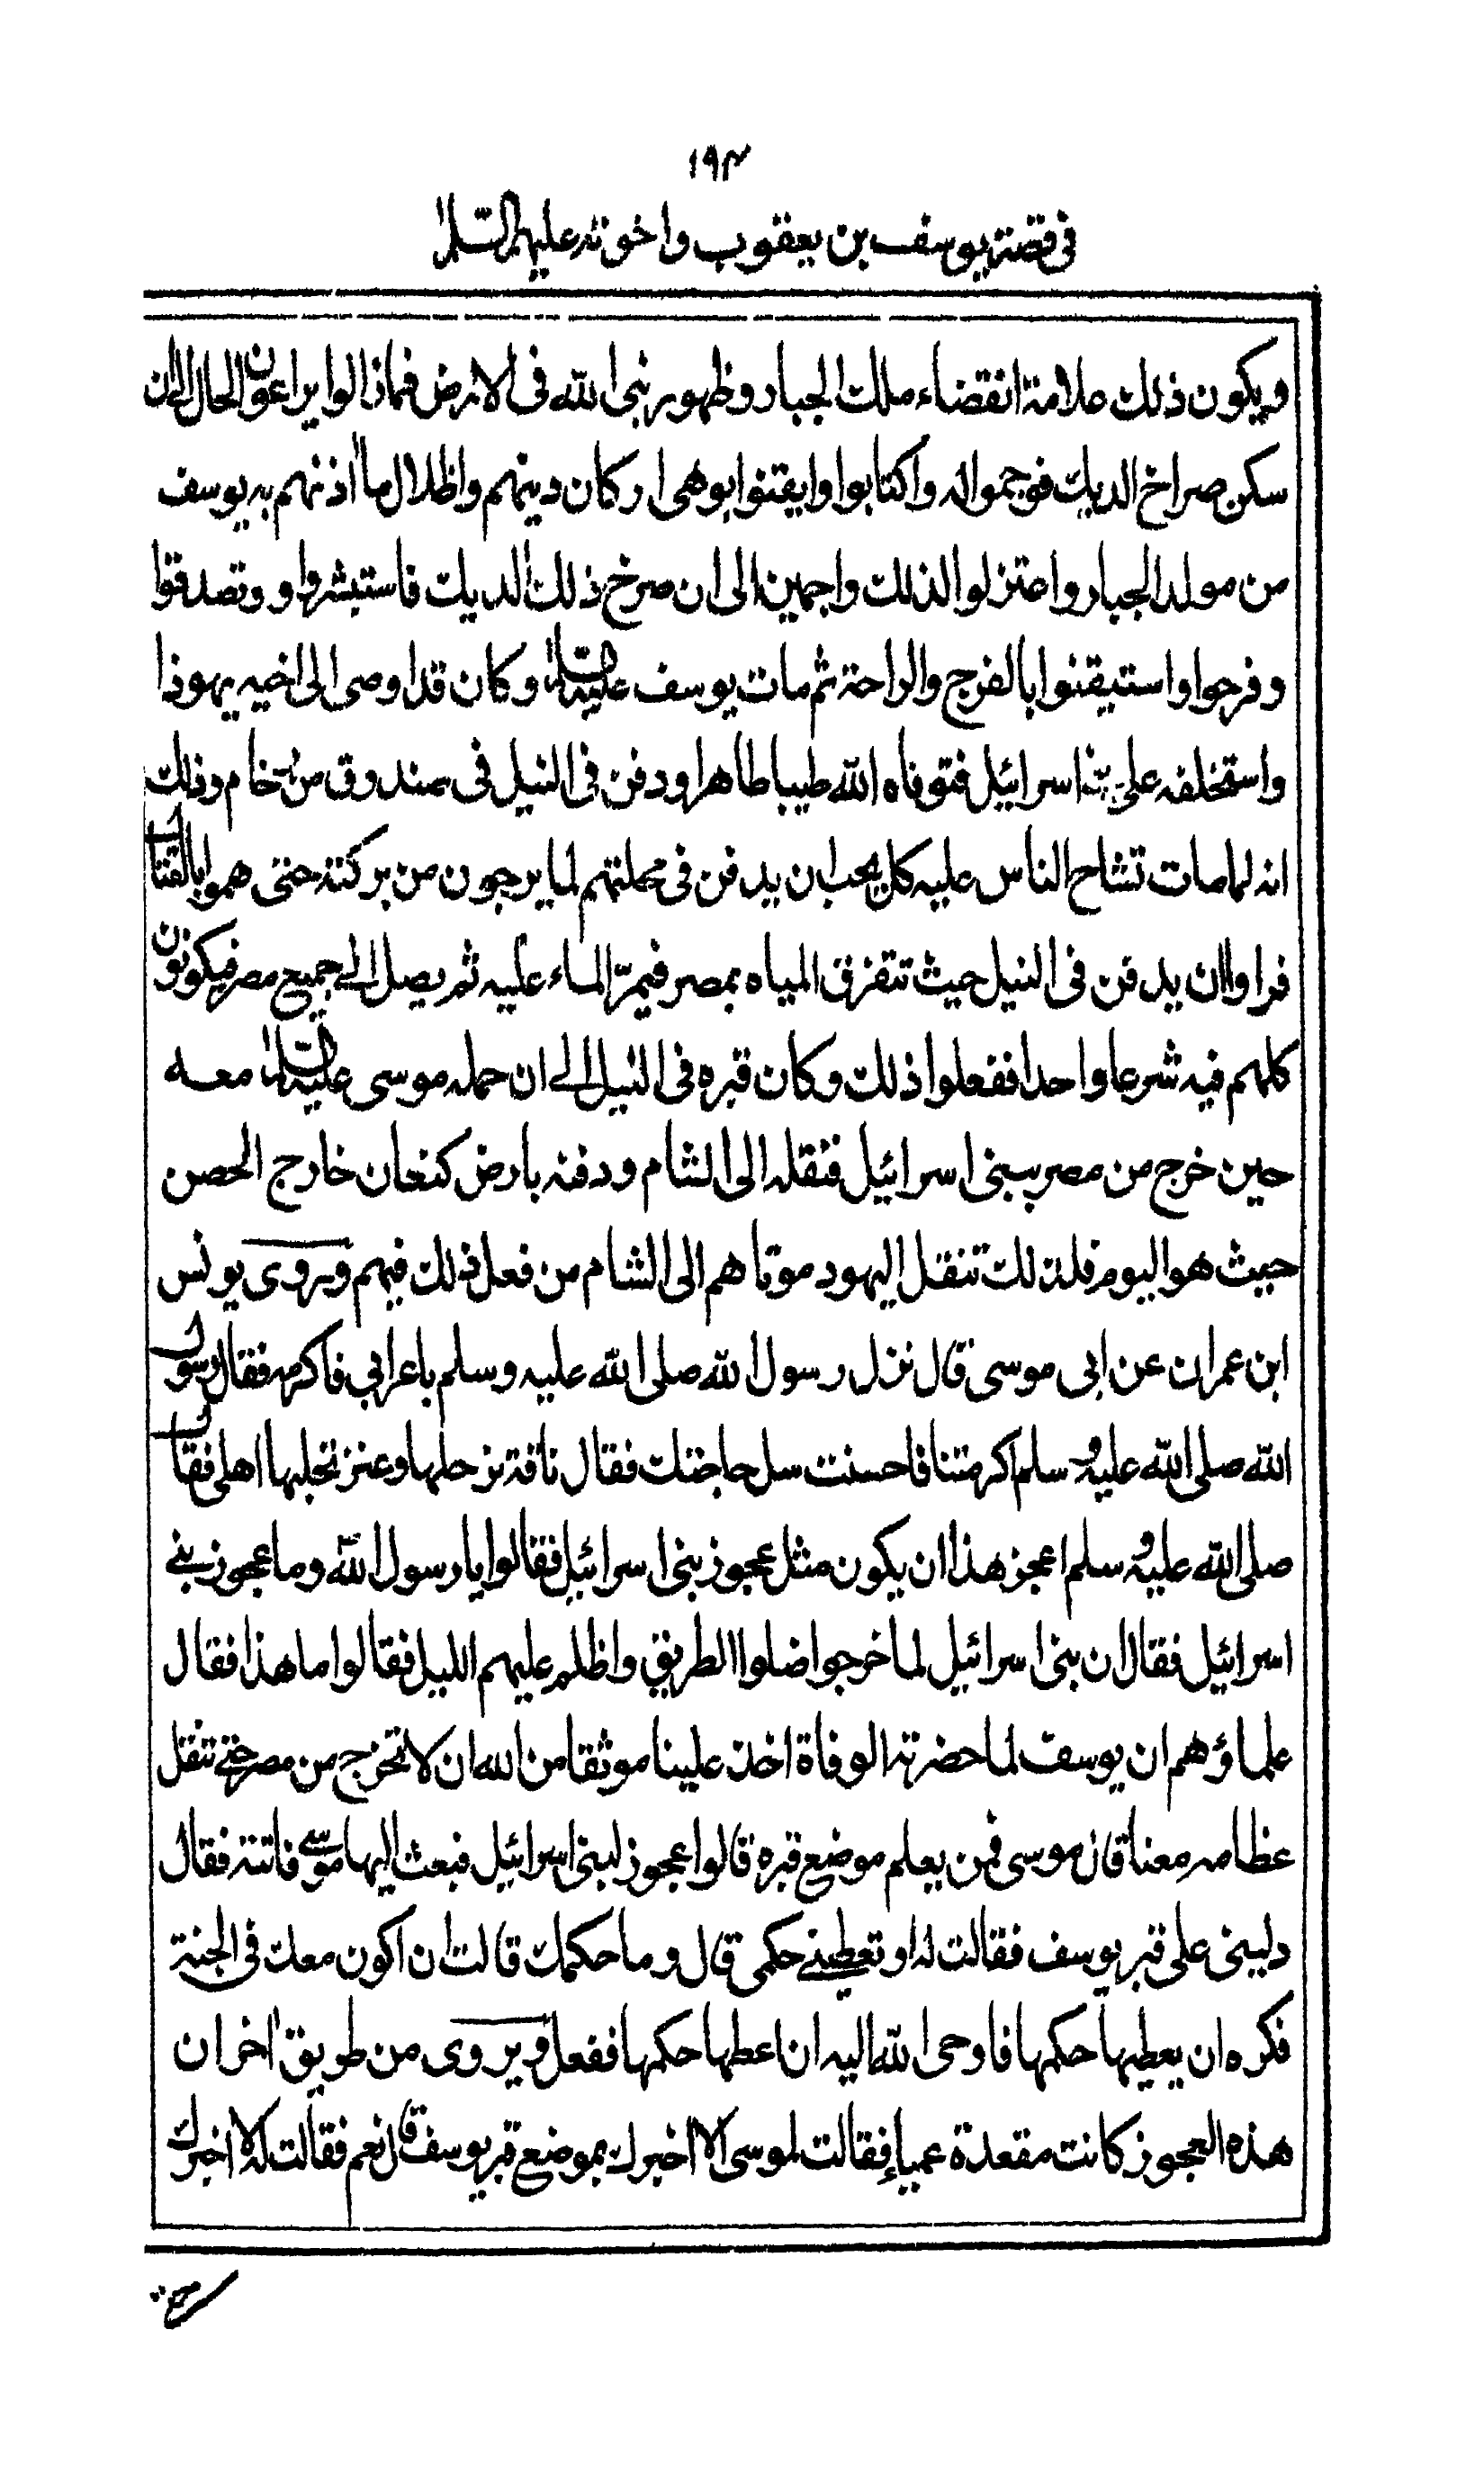 ١٩٣
في قصة يوسف بن يعقوب واخوته عليهم السلام
ويكون ذلك علامة انقضاء ملك الجبار وظهور نبى الله فى الارض فما ذالوا يراعون الحال الى ان
سكن صراخ الديك فوجموا له واكتابوا وايقنوا بوهى اركان دينهم واظلال ما اذنهم به يوسف
من مولد الجبار واعتزلوا لذلك واجمين الى ان صرخ ذلك الديك فاستبشروا و وتصدقوا
وفرحوا واستيقنوا بالفرج والراحة ثم مات يوسف عليه السلام وكان قد اوصى الى اخيه يهوذا
واستخلفه على بنى اسرائيل فتوفاه الله طيبا طاهرا ودفن فى النيل فى صندوق من رخام وذلك
انه لما مات تشاح الناس عليه كل يحب ان يدفن فى محلتهم لما يرجون من بركته حتى هموا بالقتال
فراوا ان يدفن فى النيل حيث تتفرق المياه بمصر فيمرّ الماء عليه ثم يصل الى جميع مصر فيكونون
كلهم فيه شرعا واحدا ففعلوا ذلك وكان قبره فى النيل الى ان حمله موسى عليه السلام معه
حين خرج من مصر ببنى اسرائيل فنقله الى الشام ودفنه بارض كنعان خارج الحصن
حيث هو اليوم فلذلك تنقل اليهود موتاهم الى الشام من فعل ذلك فيهم ويروى يونس
ابن عمران عن ابى موسى قال نزل رسول الله صلى الله عليه وسلم باعرابي فاكرمه فقال رسول
الله صلى الله عليه وسلم اكرمتنا فاحسنت سل حاجتك فقال ناقة نرحلها وعنز نحلبها اهلى فقال
صلى الله عليه وسلم اعجز هذا ان يكون مثل عجوز بنى اسرائيل فقالوا يا رسول الله وما عجوز بني
اسرائيل فقال ان بنى اسرائيل لما خرجوا ضلوا الطريق واظلم عليهم الليل فقالوا ما هذا فقال
علماؤهم ان يوسف لما حضرته الوفاة اخذ علينا موثقا من الله ان لا نخرج من مصر حتى تنقل
عظامه معنا قال موسى فمن يعلم موضع قبره قالوا عجوز لبنى اسرائيل فبعث اليها موسى فاتته فقال
دلينى على قبر يوسف فقالت له او تعطيني حكمى قال وما حكمك قالت ان اكون معك فى الجنة
فكره ان يعطيها حكمها فاوحى الله اليه ان اعطها حكمها ففعل ويروى من طريق اٰخر ان
هذه العجوز كانت مقعدة عمياء فقالت لموسى الا اخبرك بموضع قبر يوسف قال نعم فقالت له لا اخبرك